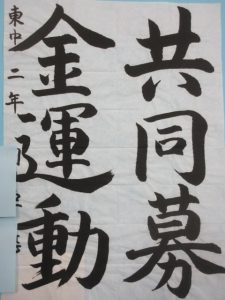 共同募
金運動
東中二年